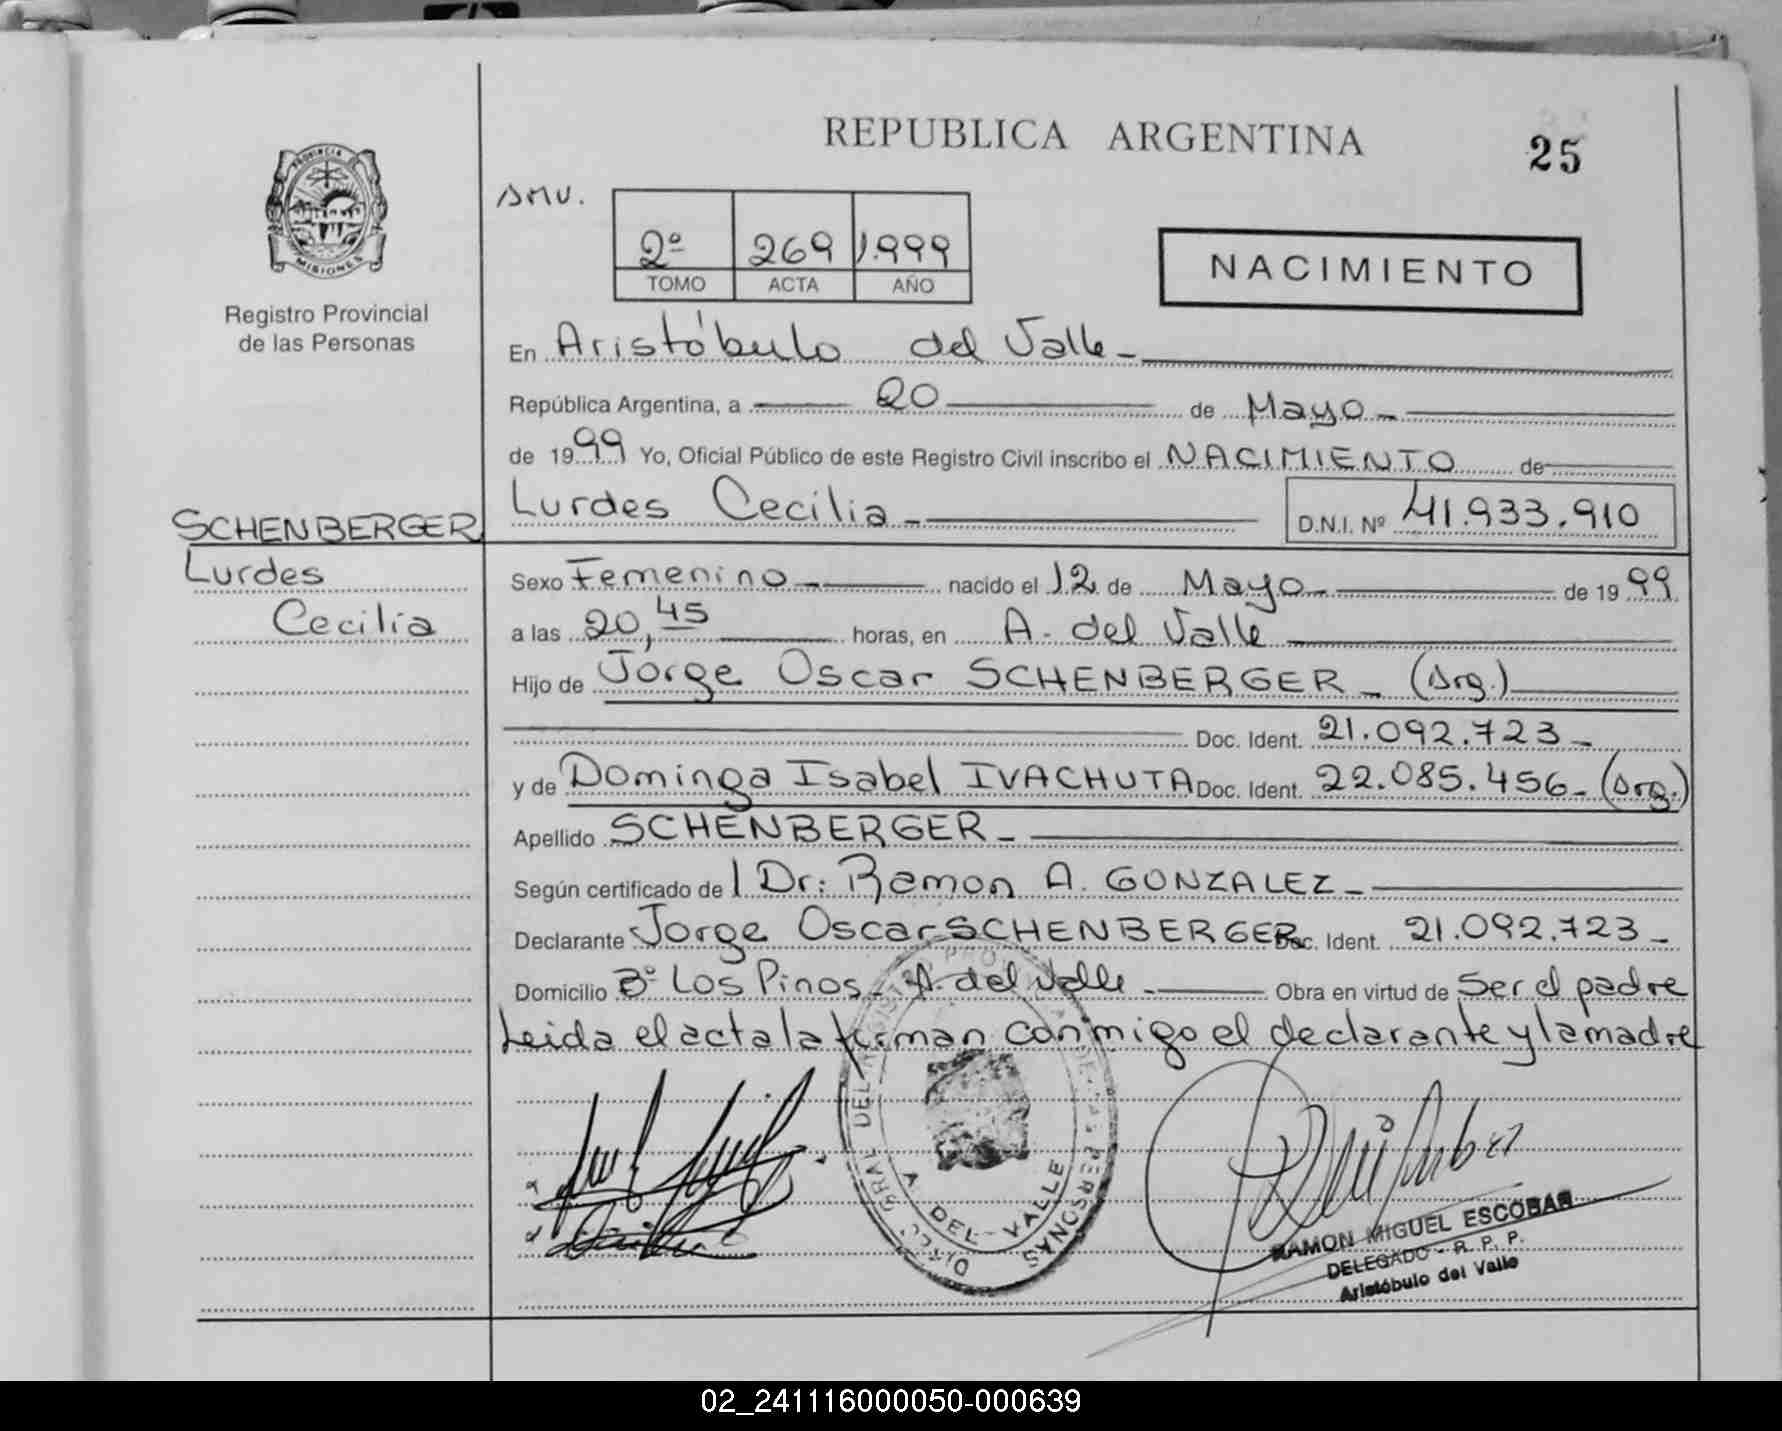 REPUBLICA ARGENTINA
25
PROVINCIA DE
MISIONES
Registro Provincial
de las Personas
SMU.
2º 269 1.999
TOMO ACTA AÑO
NACIMIENTO
En Aristóbulo del Valle-
República Argentina, a 20 de Mayo-
de 1999 Yo, Oficial Público de este Registro Civil inscribo el NACIMIENTO de
Lurdes Cecilia- D.N.I. Nº 41.933.910
SCHENBERGER
Lurdes
Cecilia
Sexo Femenino- nacido el 12 de Mayo- de 1999
a las 20,45 horas, en A. del Valle
Hijo de Jorge Oscar SCHENBERGER- (Arg.)
Doc. Ident. 21.092.723-
y de Dominga Isabel IVACHUTA Doc. Ident. 22.085.456- (Arg.)
Apellido SCHENBERGER-
Según certificado de l Dr: Ramon A. GONZALEZ-
Declarante Jorge Oscar SCHENBERGER Doc. Ident. 21.092.723-
Domicilio Bº Los Pinos- A. del Valle- Obra en virtud de Ser el padre
Leida el acta la firman conmigo el declarante y la madre
DIREC. GRAL DEL REGISTRO PROVINCIAL DE LAS PERSONAS
A. DEL VALLE
RAMON MIGUEL ESCOBAR
DELEGADO - R. P. P.
Aristóbulo del Valle
02_241116000050-000639